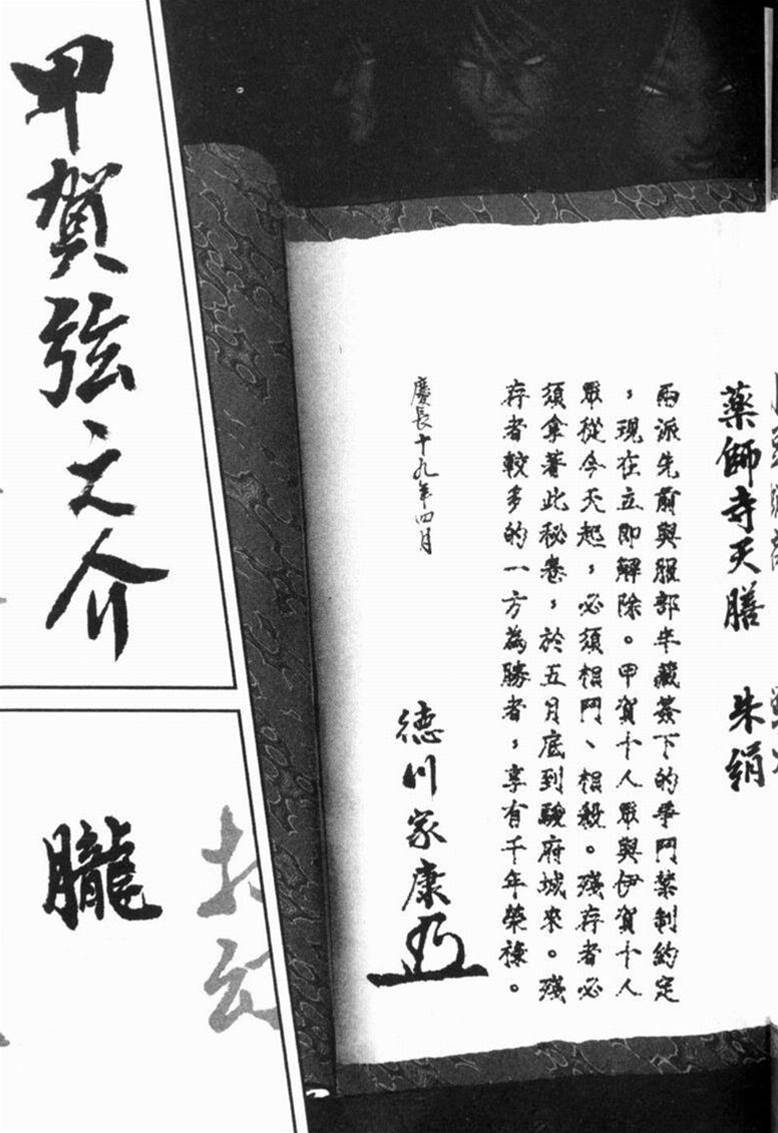 藥師寺天膳 朱絹
兩派先前與服部半藏簽下的爭鬥禁制約定
，現在立即解除。甲賀十人眾與伊賀十人
眾從今天起，必須相鬥、相殺。殘存者必
須拿著此秘卷，於五月底到駿府城來。殘
存者較多的一方為勝者，享有千年榮祿。
慶長十九年四月
德川家康
甲賀弦之介
朧